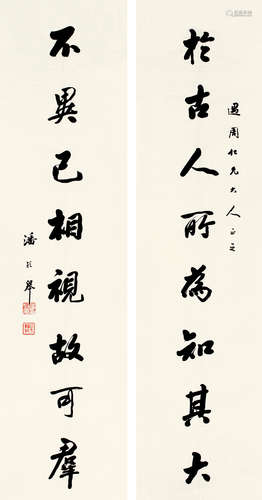 於古人所為知其大
周仁兄大人正之
不異己相視故可羣
潘齡皋